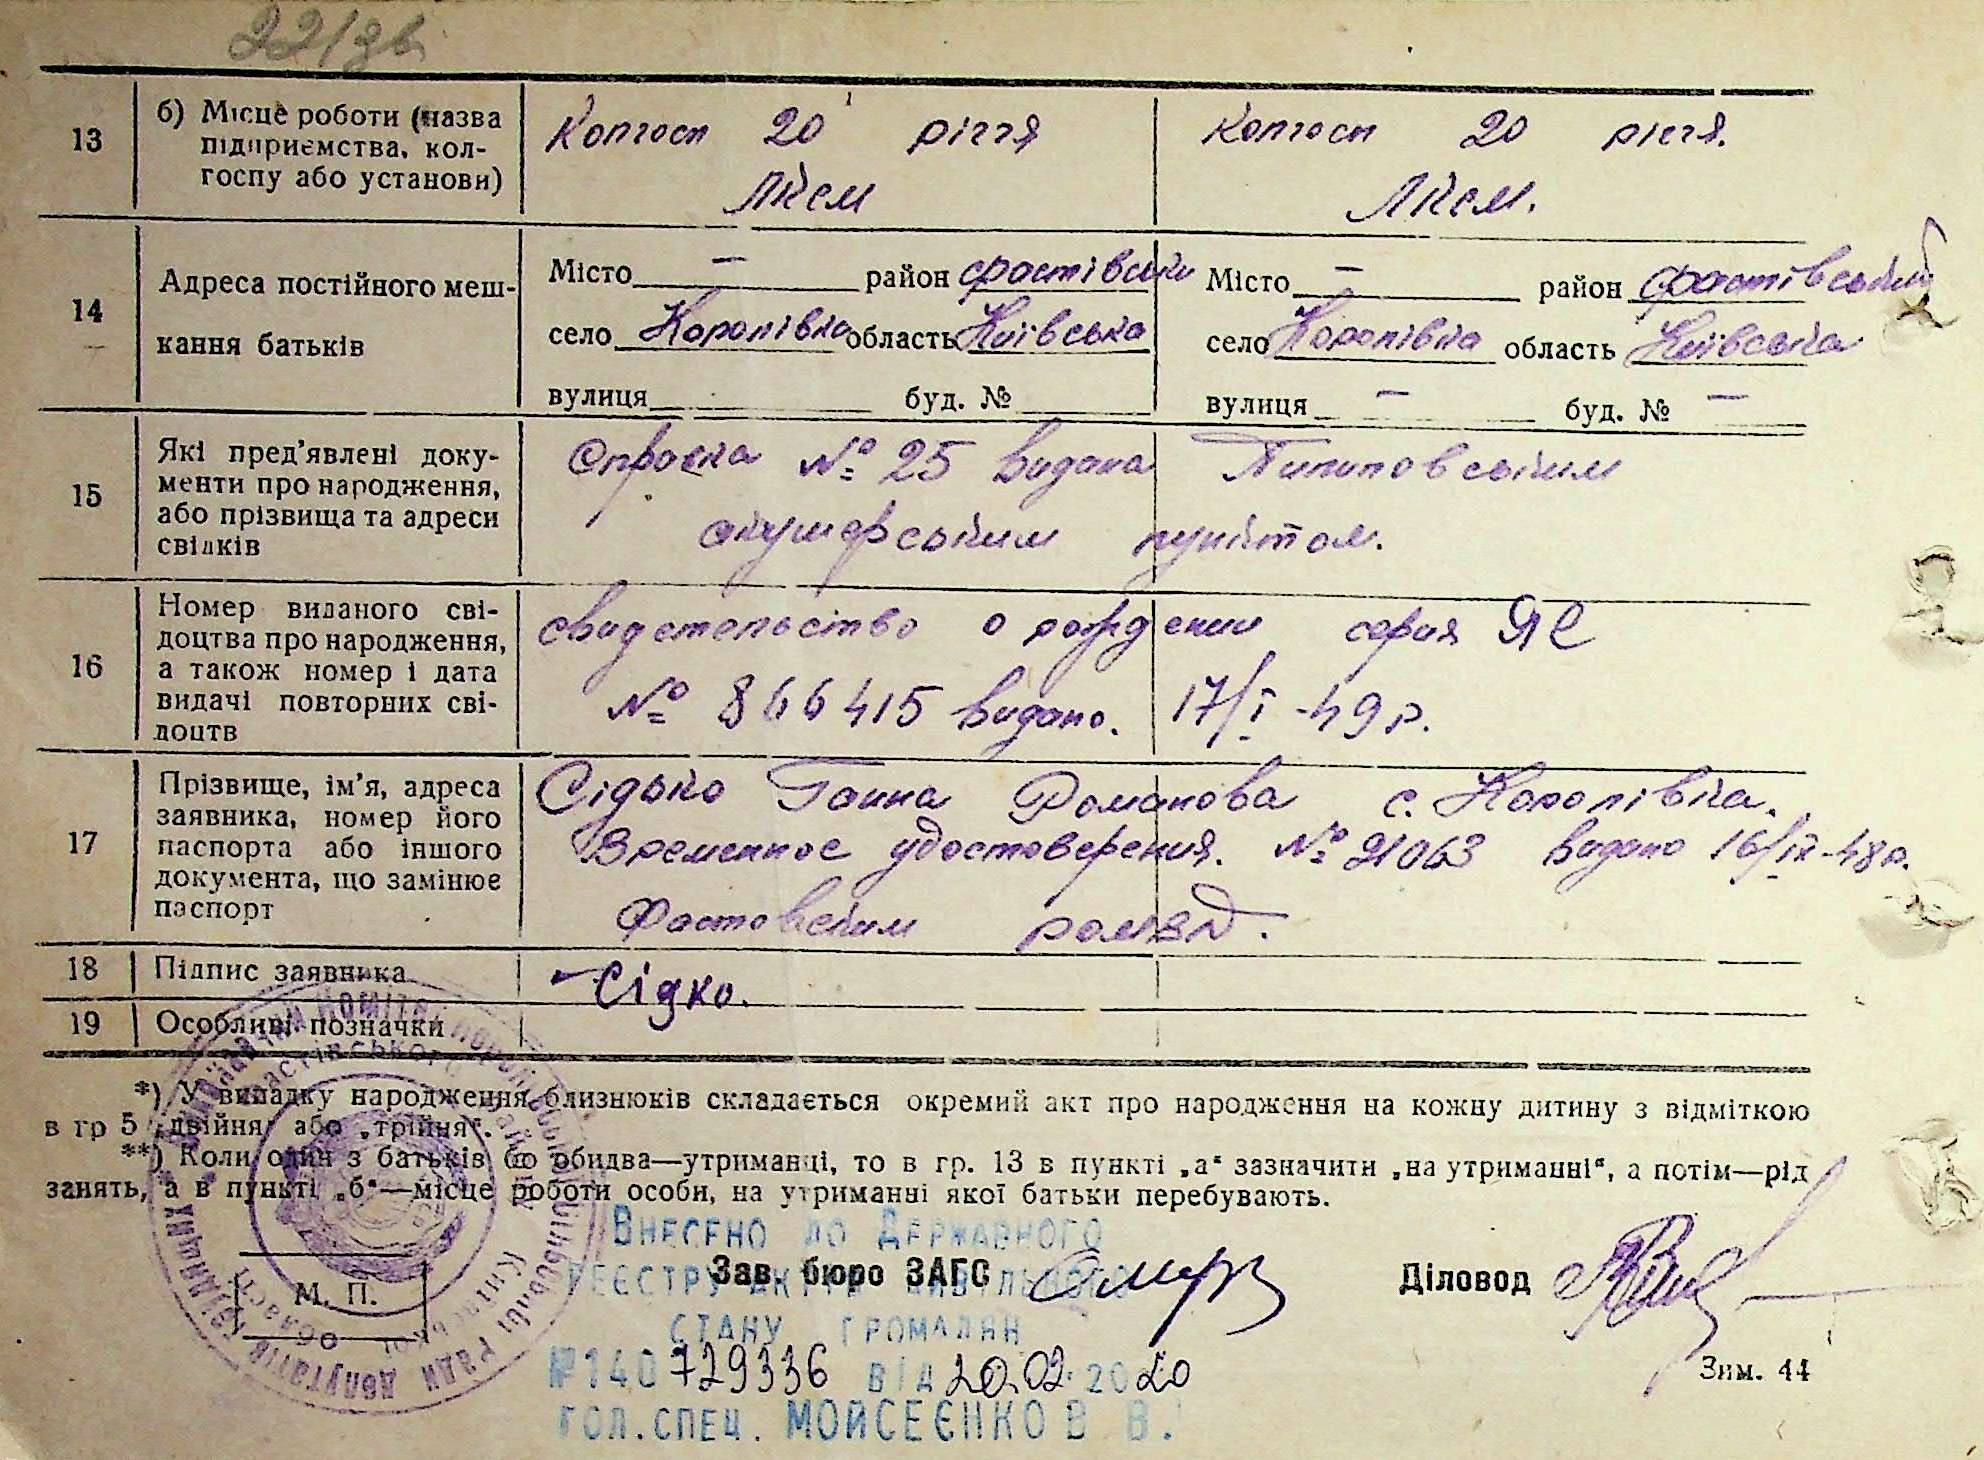 22/зв.
13
б) Місце роботи (назва підприємства, колгоспу або установи)
Колгосп 20 річчя
ЛКСМ
Колгосп 20 річчя.
ЛКСМ.
14
Адреса постійного мешкання батьків
Місто — район Фастівськи
село Королівка область Київська
вулиця буд. №
Місто — район Фастівський
село Королівка область Київська
вулиця — буд. № —
15
Які пред'явлені документи про народження, або прізвища та адреси свідків
Справка № 25 видана Пилиповським
акушерським пунктом.
16
Номер виданого свідоцтва про народження, а також номер і дата видачі повторних свідоцтв
свидетельство о рождении серия ЯС
№ 866415 видано. 17/I-49 р.
17
Прізвище, ім'я, адреса заявника, номер його паспорта або іншого документа, що замінює паспорт
Сідько Ганна Романовa с. Королівка.
Временное удостоверения. № 21063 видано 16/IX-48 р.
Фастовским
18
Підпис заявника
Сідко.
19
Особливі позначки
*) У випадку народження близнюків складається окремий акт про народження на кожну дитину з відміткою
в гр 5 „двійня" або „трійня".
**) Коли один з батьків бо обидва—утриманці, то в гр. 13 в пункті „а" зазначити „на утриманні", а потім—рід
занять, а в пункті „б"—місце роботи особи, на утриманні якої батьки перебувають.
М. П.
Зав. бюро ЗАГС
Діловод
Внесено до Державного
реєстру актів цивільного
стану громадян
№ 140 729336 від 20.02.2020
гол.спец. Мойсеєнко В В.
Зим. 44